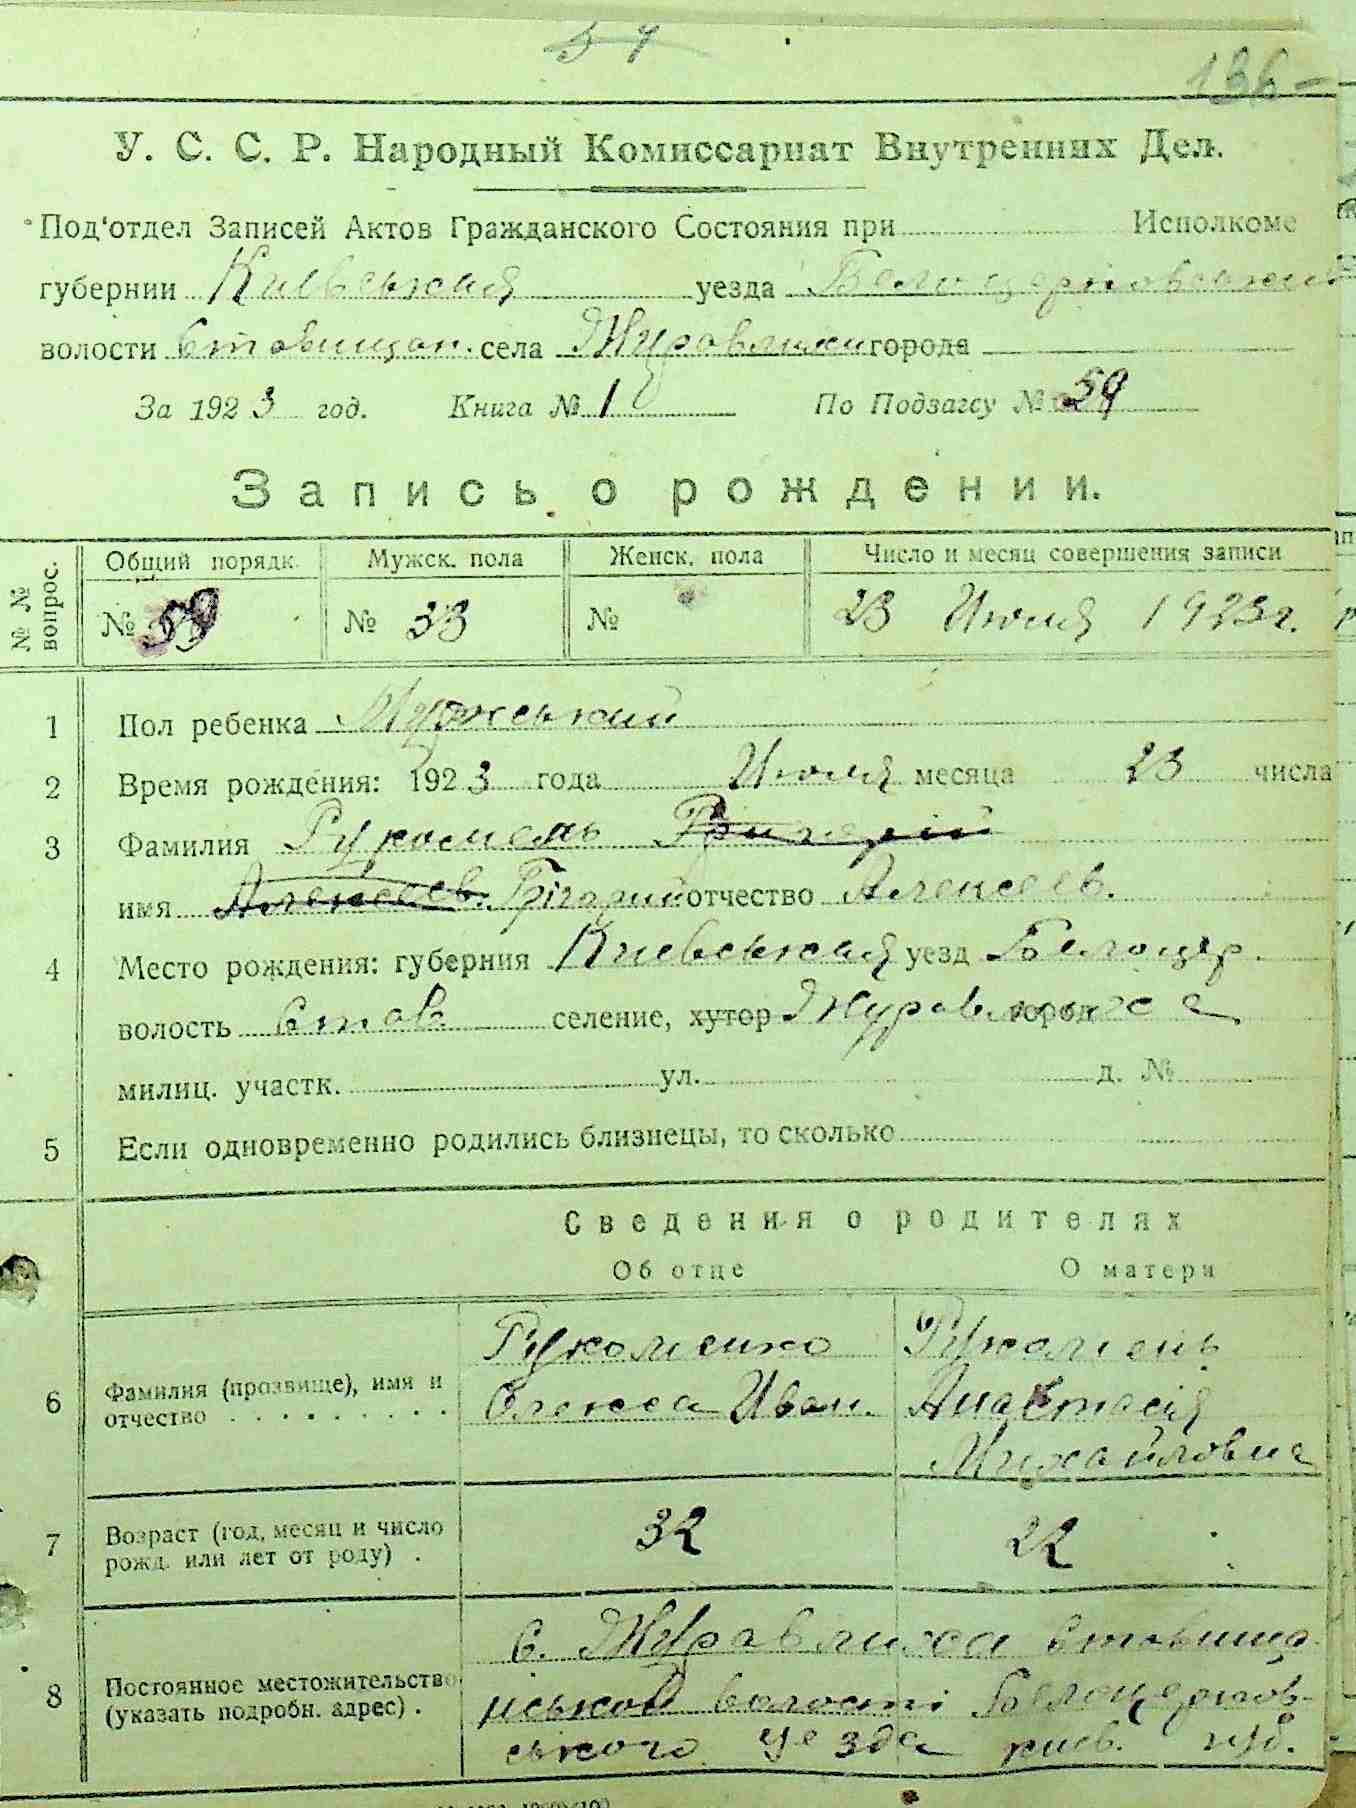 54
136
У. С. С. Р. Народный Комиссариат Внутренних Дел.
Под'отдел Записей Актов Гражданского Состояния при Исполкоме
губернии Киевськая уезда Белоцерковський
волости Ставищан. села Журавлихи города
За 1923 год. Книга № 1 По Подзагсу № 59
Запись о рождении.
№ № вопрос. Общий порядк. Мужск. пола Женск. пола Число и месяц совершения записи
№ 59 № 33 № 23 Июля 1923 г.
1 Пол ребенка Мужський
2 Время рождения: 1923 года Июля месяца 23 числа
3 Фамилия Рукомень Григорій
имя Алексеев. Грігорий отчество Алексеев.
4 Место рождения: губерния Киевськая уезд Белоцер.
волость Став. селение, хутор Журавлиха город
милиц. участк. ул. д. №
5 Если одновременно родились близнецы, то сколько
Сведения о родителях
Об отце О матери
6 Фамилия (прозвище), имя и отчество Рукоменко Олекса Иван. Рукомень Анастасія Михайловна
7 Возраст (год, месяц и число рожд. или лет от роду) . 32 22
8 Постоянное местожительство (указать подробн. адрес) . с. Журавлиха Ставища
нськой волості Белоцерков-
ського уезда киев. губ.